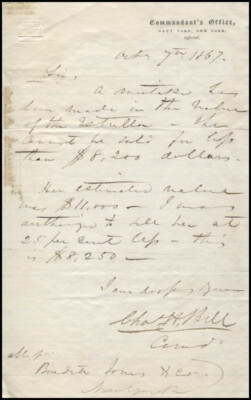 Commandant's Office,
NAVY YARD, NEW YORK,
Octr 7th 1867.
Sir,
A mistake has
been made in the value
of the Estrella - She
cannot be sold for less
than $8,200 dollars.
Her estimated value
was $11,000 - I was
authorized to sell her at
25 per cent less - this
is $8,250 -
I am
Chas H. Bell
Comdt
New York